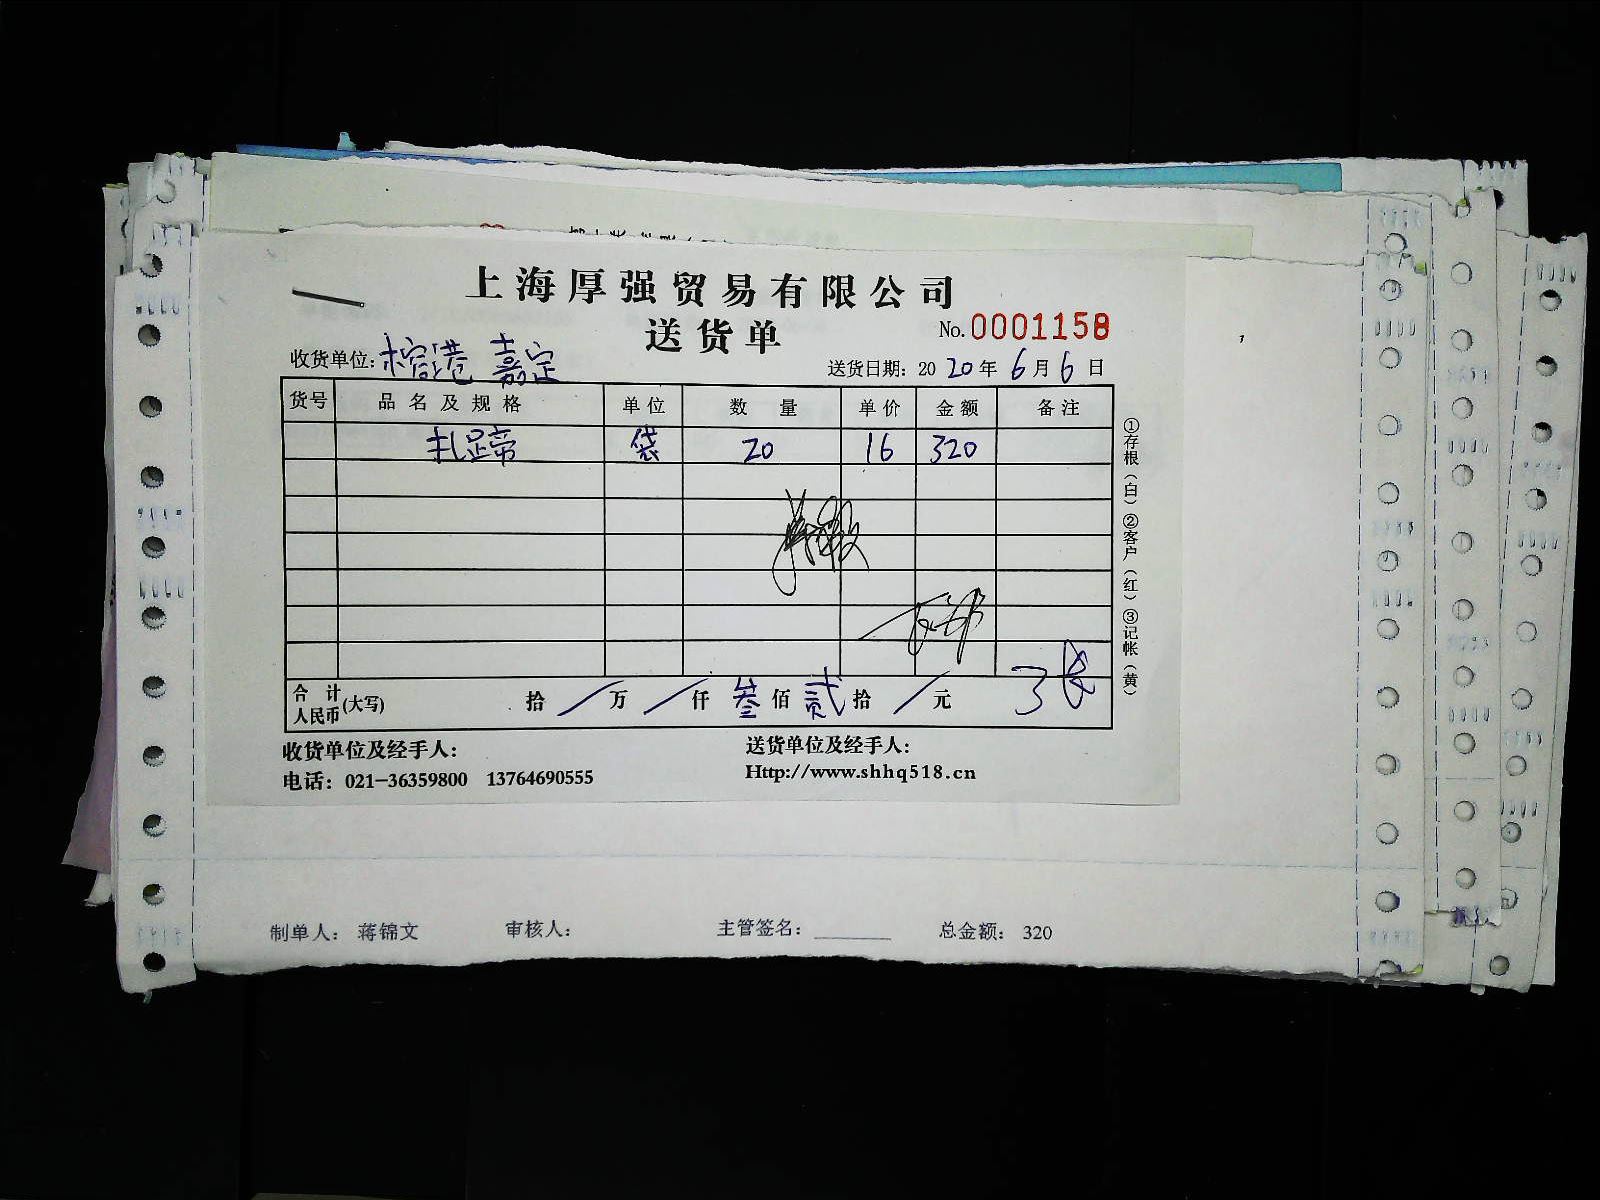 上海厚强贸易有限公司
送货单
No.0001158
收货单位:榕港 嘉定
送货日期: 2020年6月6日
货号 品名及规格 单位 数量 单价 金额 备注
扎蹄 袋 20 16 320
合计人民币(大写) 拾/万/仟叁佰贰拾/元
①存根(白)②客户(红)③记帐(黄)
收货单位及经手人: 送货单位及经手人:
电话: 021-36359800 13764690555 Http://www.shhq518.cn
制单人: 蒋锦文 审核人: 主管签名: ______ 总金额: 320